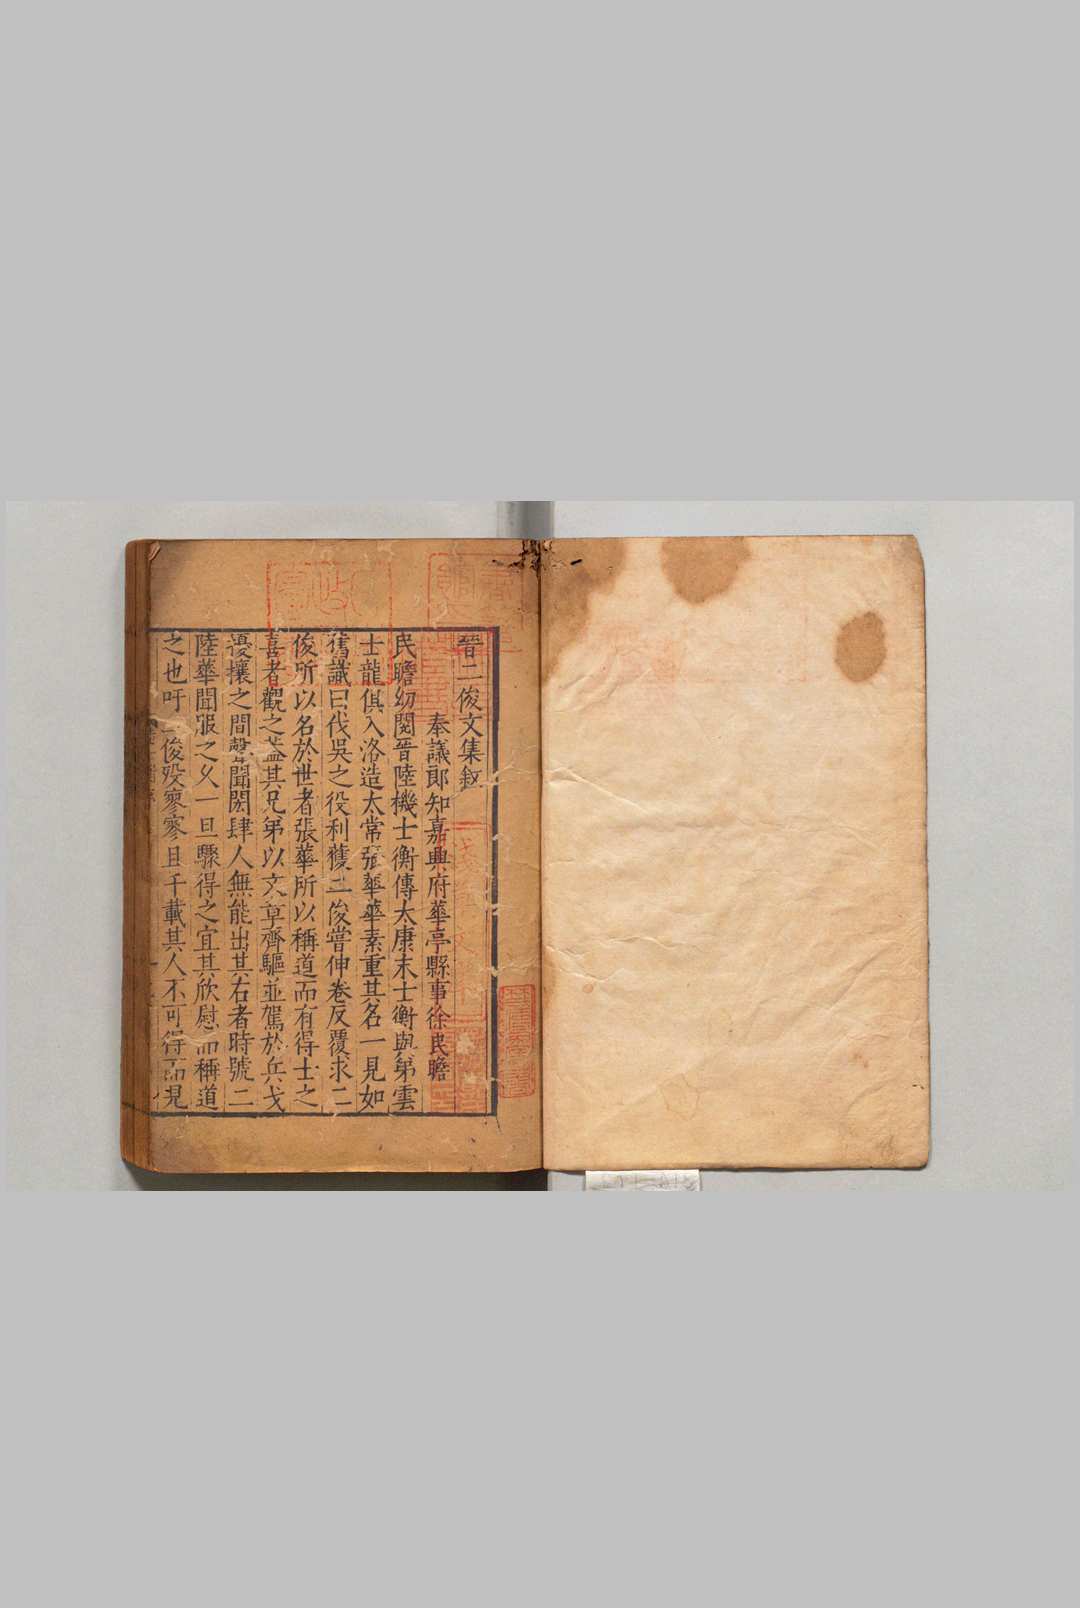 晉二俊文集敘
奉議郎知嘉興府華亭縣事徐民瞻
民瞻幼閱晉陸機士衡傳太康末士衡與弟雲
士龍俱入洛造太常張華華素重其名一見如
舊識曰伐吳之役利獲二俊嘗伸卷反覆求二
俊所以名於世者張華所以稱道而有得士之
喜者觀之蓋其兄弟以文章齊驅並駕於兵戈
擾攘之間聲聞閎肆人無能出其右者時號二
陸華聞服之久一旦驟得之宜其欣慰而稱道
之也吁二俊歿寥寥且千載其人不可得而見